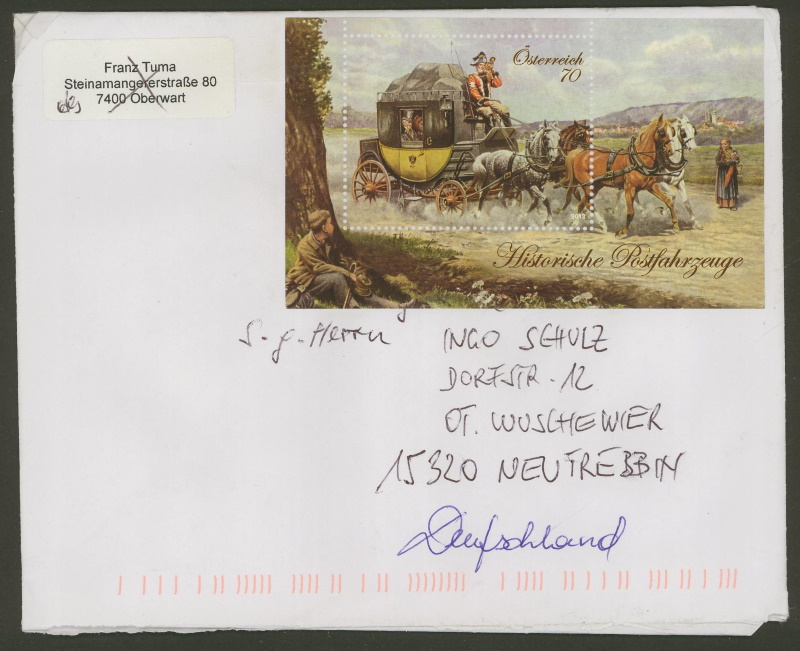 Franz Tuma
Steinamangererstraße 80
7400 Oberwart
Österreich
70
2013
Historische Postfahrzeuge
S. g. Herrn INGO SCHULZ
DORFSTR. 12
OT. WUSCHEWIER
15320 NEUTREBBIN
Deutschland